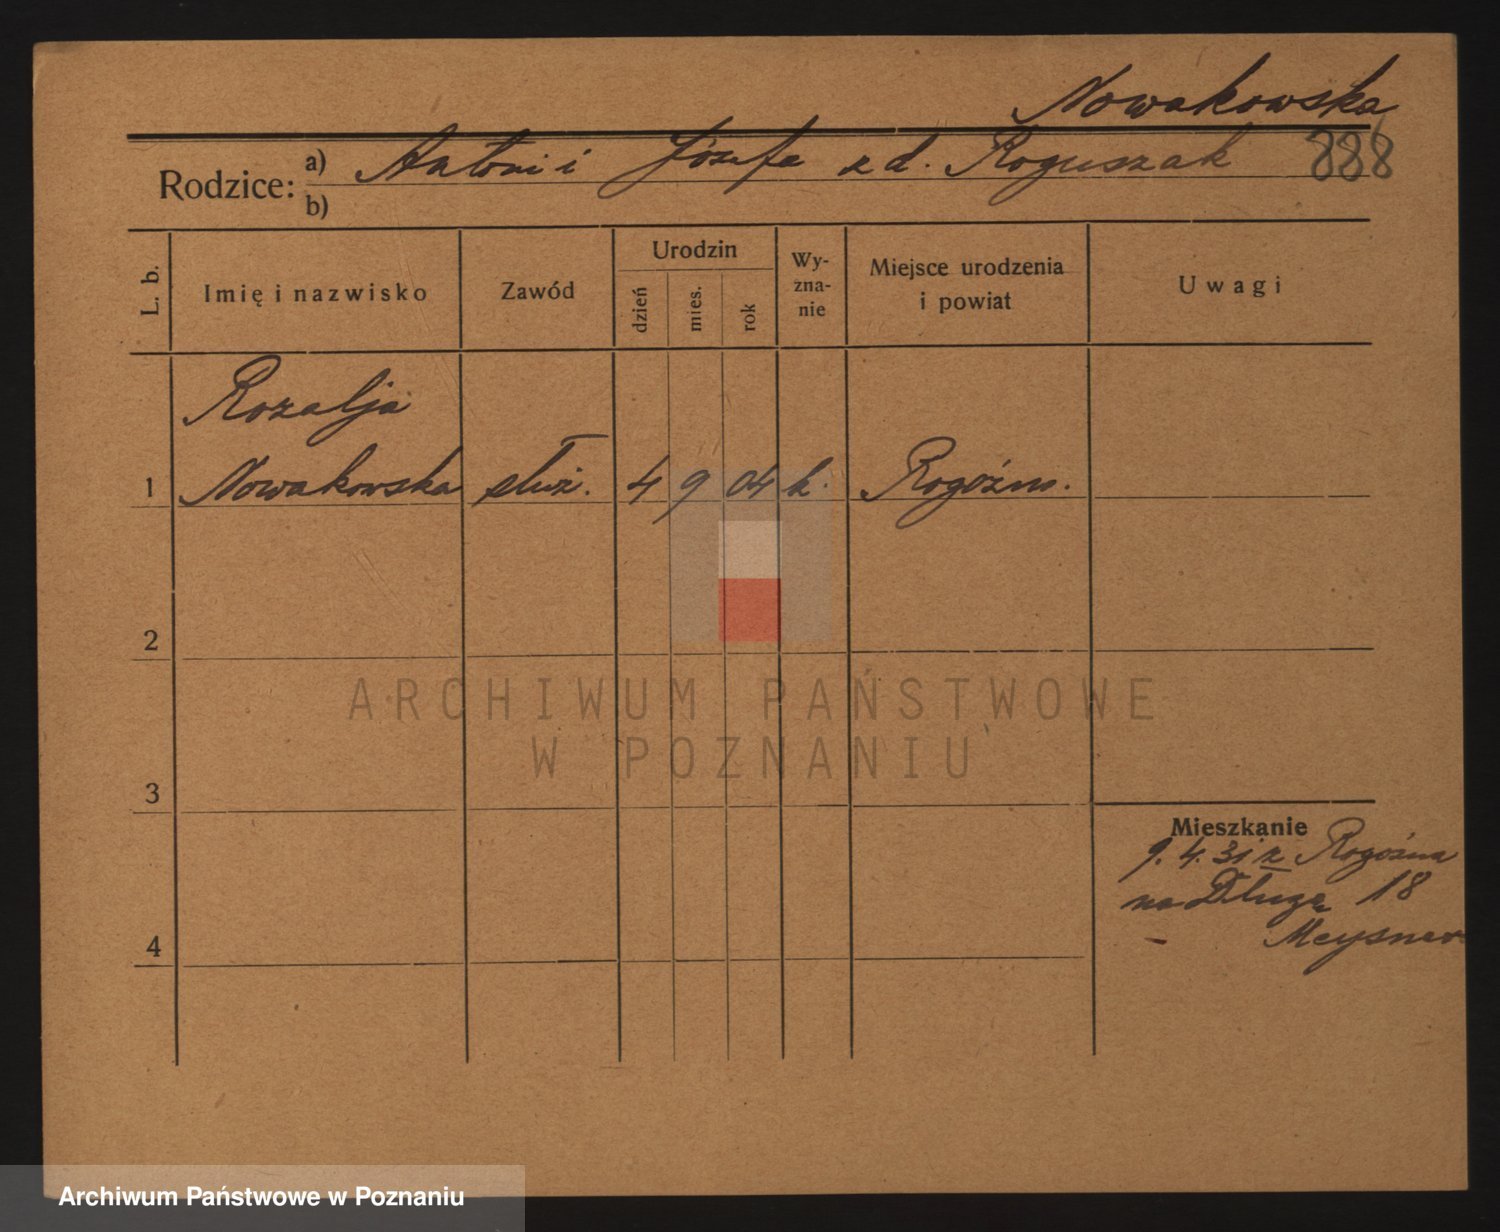 Nowakowska
Rodzice: a) Antoni i Józefa z d. Roguszak 888
b)
L. b.
Imię i nazwisko
Zawód
Urodzin
dzień
mies.
rok
Wy-
zna-
nie
Miejsce urodzenia
i powiat
Uwagi
Rozalja
1 Nowakowska służ. 4 9 04 k. Rogoźno.
2
ARCHIWUM PAŃSTWOWE
W POZNANIU
3
Mieszkanie
9. 4. 31 z Rogoźna
na Długą 18
Meysner
4
Archiwum Państwowe w Poznaniu